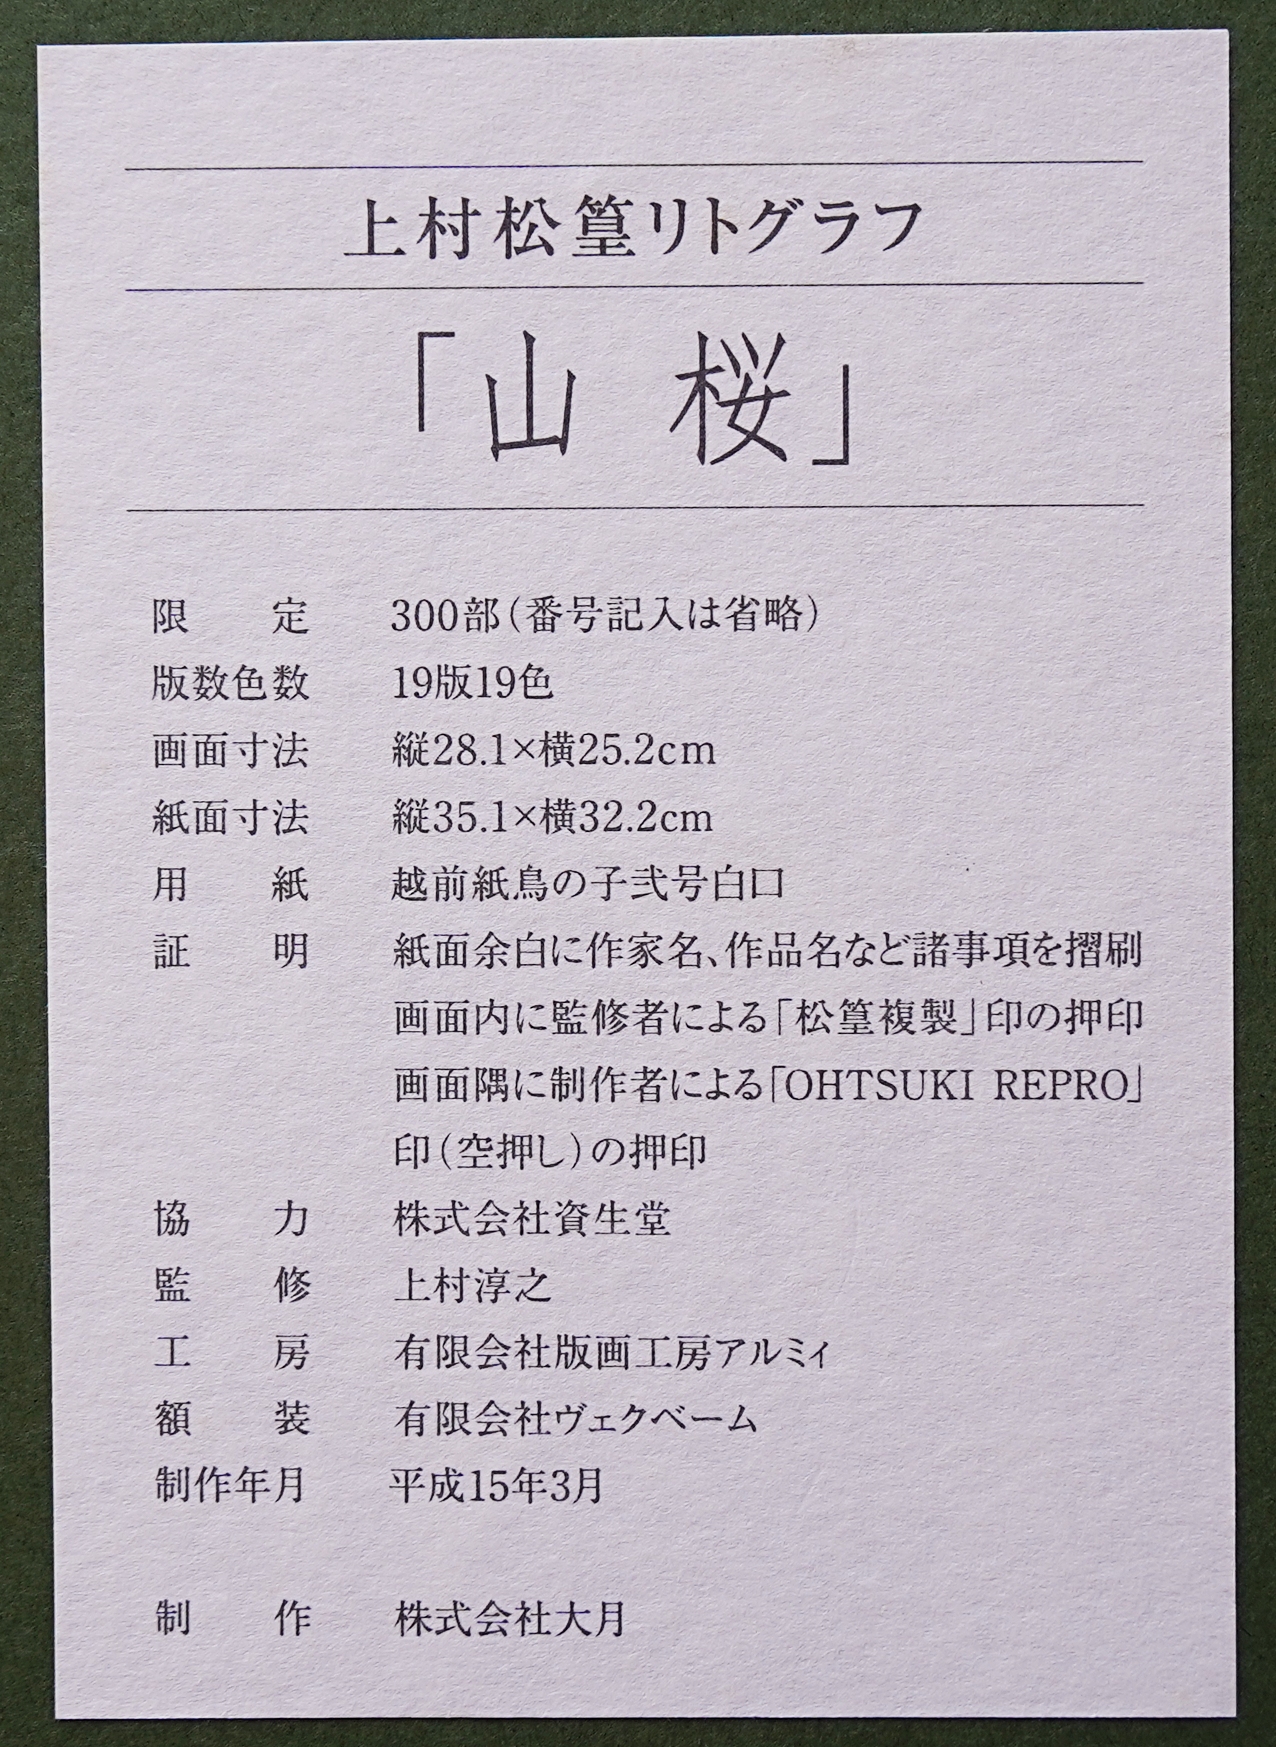 上村松篁リトグラフ
「山 桜」
限 定 300部（番号記入は省略）
版数色数 19版19色
画面寸法 縦28.1×横25.2cm
紙面寸法 縦35.1×横32.2cm
用 紙 越前紙鳥の子弐号白口
証 明 紙面余白に作家名、作品名など諸事項を摺刷
画面内に監修者による「松篁複製」印の押印
画面隅に制作者による「OHTSUKI REPRO」
印（空押し）の押印
協 力 株式会社資生堂
監 修 上村淳之
工 房 有限会社版画工房アルミィ
額 装 有限会社ヴェクベーム
制作年月 平成15年3月
制 作 株式会社大月